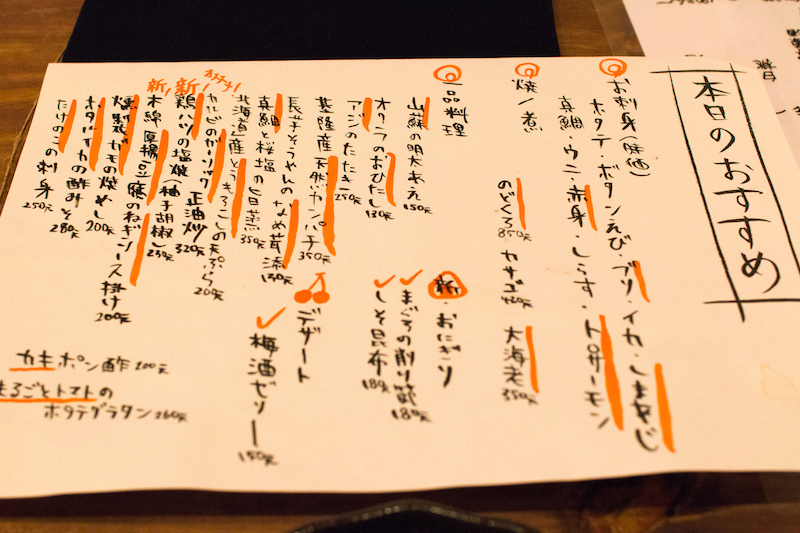 本日のおすすめ
お刺身(時価)
ホタテ・ボタンえび・ブリ・イカ・しまあじ
真鯛・ウニ・赤身・しらす・トロサーモン
焼/煮
のどくろ850元 カサゴ420元 大海老350元
一品料理
山蘇の明太あえ150元
オクラのおひたし130元
アジのたたき250元
基隆産天然カンパチ350元
長芋そうめんのなめ茸添130元
真鯛と桜塩の旨蒸350元
北海道産とうもろこしの天ぷら200元
オススメ!
カルビのガーリック正油炒320元
新!
鶏ハツの塩焼(柚子胡椒)230元
新!
木綿厚揚豆腐のねぎソース掛け200元
燻製ガモの焼めし200元
ホタルイカの酢みそ280元
たけのこの刺身250元
新・おにぎり
まぐろの削り節180元
しそ昆布180元
デザート
梅酒ゼリー150元
カキポン酢200元
まるごとトマトの
ホタテグラタン260元